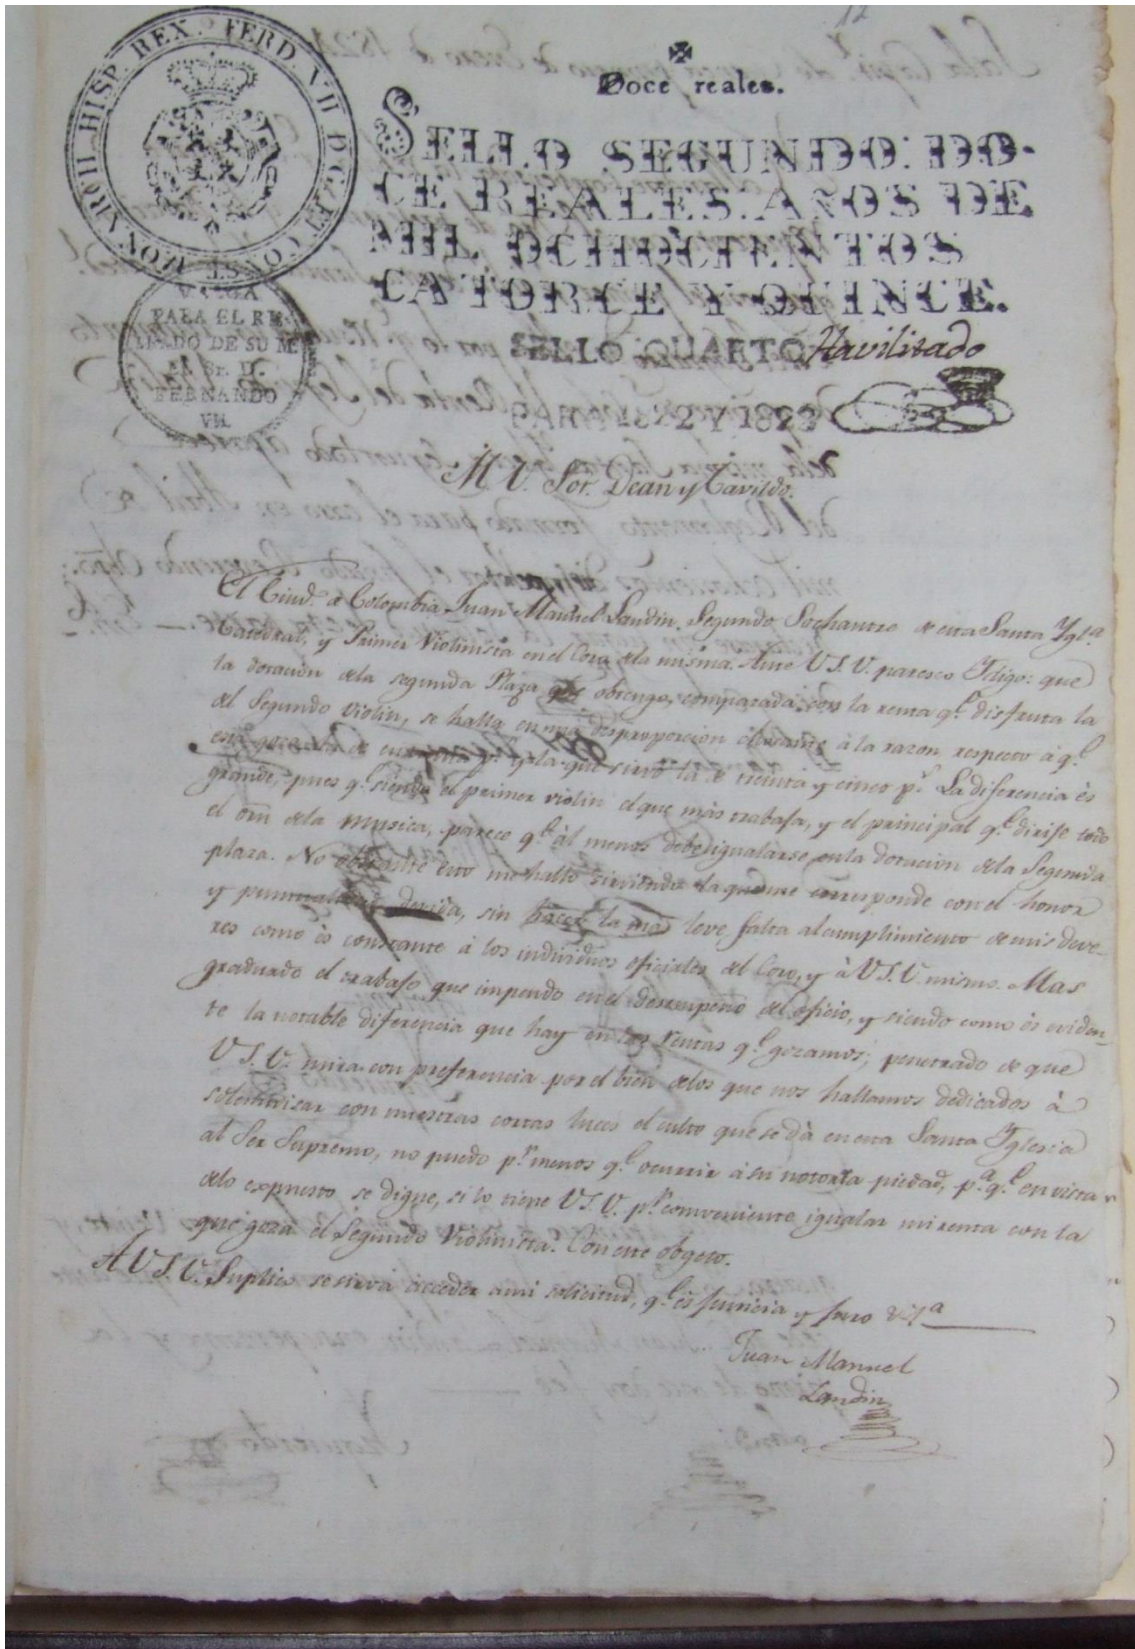 12
HISP. REX. FERD. VII D.G. ET CONST. MONARCH
Doce reales.
SELLO SEGUNDO. DO-
CE REALES. AÑOS DE
MIL OCHOCIENTOS
CATORCE Y QUINCE.
VALGA
PARA EL REI-
NADO DE SU M.
EL Sr. D.
FERNANDO
VII.
SELLO QUARTO
Havilitado
PARA 1822 Y 1823
M. V. Sor. Dean y Cavildo.
El Ciud. d Colombia Juan Manuel Landin. Segundo Sochantre de esta Santa Ygla
Catedral, y Primer Violinista en el Coro dela misma. Ante V S. V. paresco Y digo: que
la dotacion dela segunda Plaza que obtengo, comparada con la renta q.e disfruta la
del Segundo violin, se halla en una desproporcion à la razon respecto à q.e
esta goza la de y la que sirvo la de treinta y cinco p.s La diferencia ès
grande, pues q.e siendo el primer violin el que màs trabaja, y el principal q.e dirije todo
el òrn dela musica, parece q.e àl menos debe igualarse en la dotacion dela Segunda
plaza. No obstante esto me hallo sirviendo la que me corresponde con el honor
y puntualidad devida, sin hacer la mas leve falta al cumplimiento de mis deve-
res como ès constante à los individuos oficiales del Coro, y à V S. V. mismo. Mas
graduado el trabajo que impendo en el desempeño del oficio, y siendo como ès eviden-
te la notable diferencia que hay en las rentas q.e gozamos; penetrado de que
V S. V. mira con preferencia por el bien delos que nos hallamos dedicados à
solemnizar con nuestras cortas luces el culto que se dà en esta Santa Yglesia
al Ser Supremo, no puedo p.r menos q.e ocurrir à su notoria piedad, p.a q.e en vista
delo expuesto se digne, si lo tiene V S. V. p.r conveniente igualar mi renta con la
que goza el Segundo Violinista. Con este obgeto.
A V S. V. Suplico se sirva acceder a mi solicitud, q.e ès justicia y juro
Juan Manuel
Landin